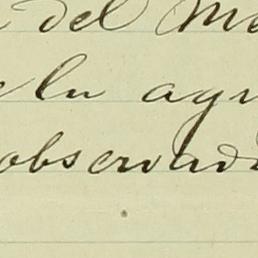 del Me
elu agu
observad